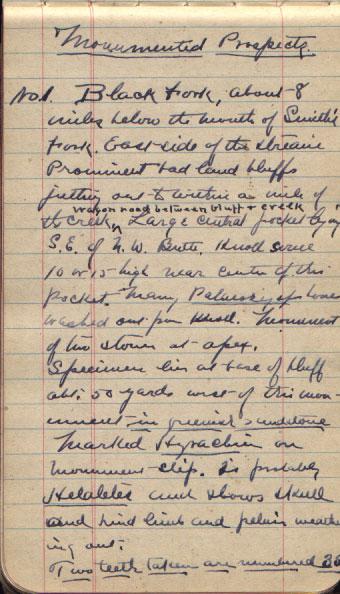 Monumented Prospects.
No 1. Black Fork, about 8
miles below the mouth of Smith's
Fork. East side of the stream
Prominent bad land bluffs
jutting out to within a mile of
wagon road between bluff + creek
the Creek, Large central pocket
S.E. of N.W. Butte. Knoll some
10 or 15 high near center of this
pocket. Many Palaeosyops bones
washed out from knoll. Monument
of two stones at apex.
Specimen lies at base of bluff
abt. 50 yards west of this mon-
ument in greenish sandstone
Marked Hyrachius on
monument slip. Is probably
Helaletes and shows skull
and hind limb and pelvis weather
ing out.
Two teeth taken are numbered 38